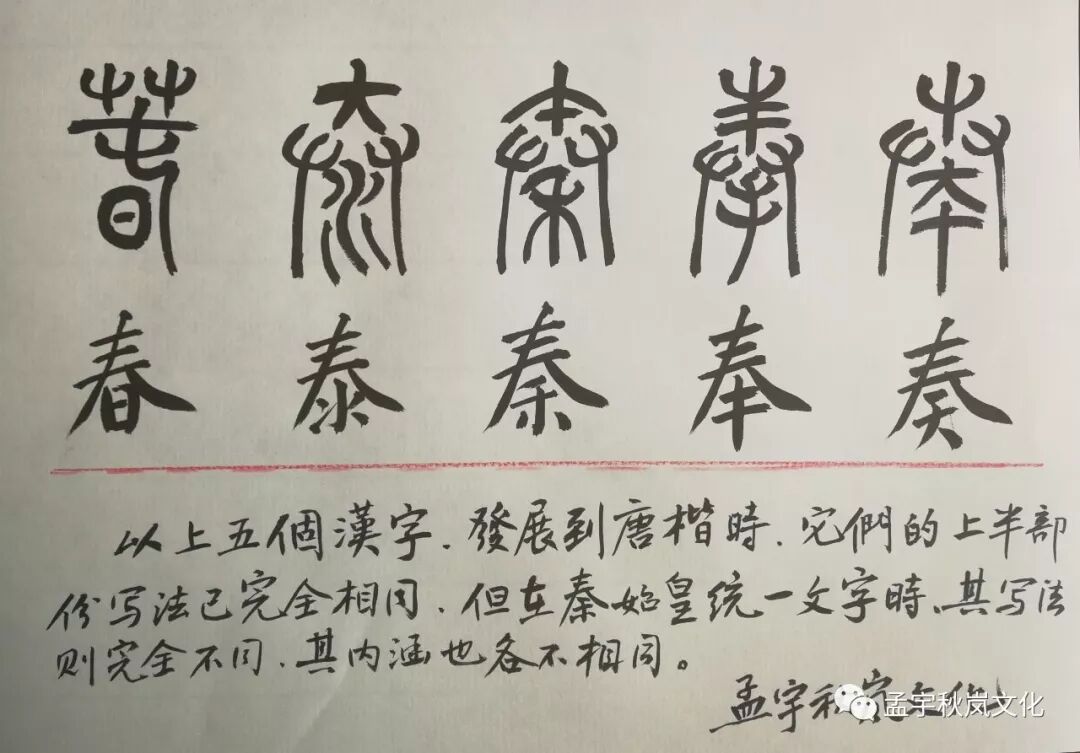 萅 泰 秦 奉 奏
春 泰 秦 奉 奏
以上五個漢字、發展到唐楷時、它們的上半部
份写法已完全相同、但在秦始皇统一文字時、其写法
则完全不同、其内涵也各不相同。
孟宇秋岚文化
孟宇秋岚文化